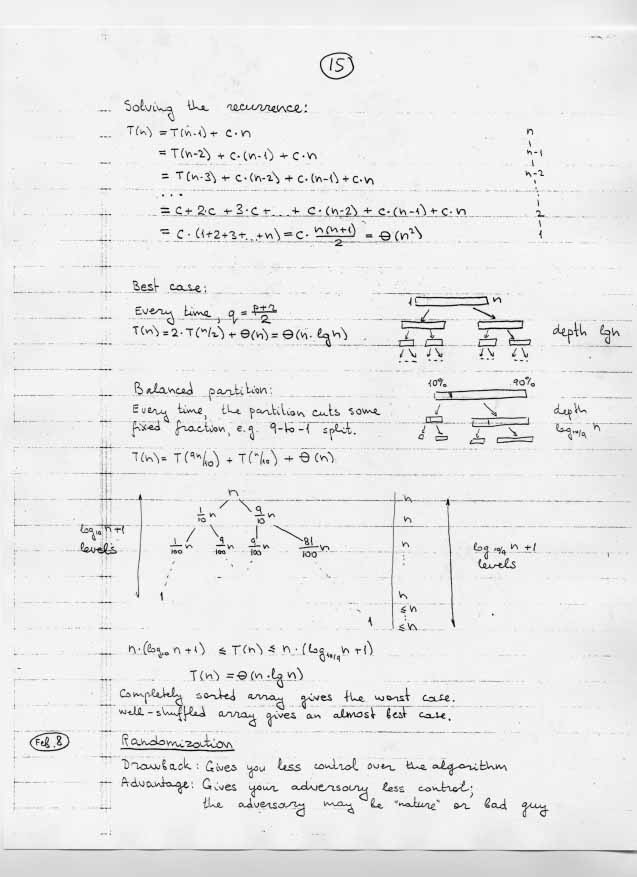 15
Solving the recurrence:
T(n) = T(n-1) + c·n
= T(n-2) + c·(n-1) + c·n
= T(n-3) + c·(n-2) + c·(n-1) + c·n
...
= c + 2·c + 3·c + ... + c·(n-2) + c·(n-1) + c·n
= c·(1+2+3+...+n) = c·n(n+1)/2 = Θ(n²)
n
n-1
n-2
2
1
Best case:
Every time, q = p+r/2
T(n) = 2·T(n/2) + Θ(n) = Θ(n·lg n)
1 n
depth lg n
Balanced partition:
Every time, the partition cuts some
fixed fraction, e.g. 9-to-1 split.
T(n) = T(9n/10) + T(n/10) + Θ(n)
10% 90%
depth
log10/9 n
n
1/10 n 9/10 n
1/100 n 9/100 n 9/100 n 81/100 n
1
1
log10 n+1
levels
n
n
n
n
≤n
≤n
log10/9 n+1
levels
n·(log10 n+1) ≤ T(n) ≤ n·(log10/9 n+1)
T(n) = Θ(n·lg n)
Completely sorted array gives the worst case.
well-shuffled array gives an almost best case.
Feb. 8
Randomization
Drawback: Gives you less control over the algorithm
Advantage: Gives your adversary less control;
the adversary may be "nature" or bad guy